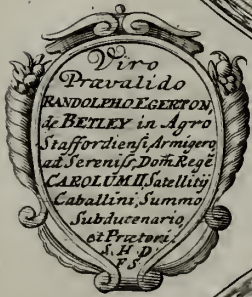 Viro
Prævalido
RANDOLPHO EGERTON,
de BETLEY in Agro
Staffordiensi, Armigero,
ad Sereniss, Dom̃. Regẽ
CAROLUM II, Satellitÿ
Caballini, Summo
Subducenario,
et Prætori.
S. H. D
FS